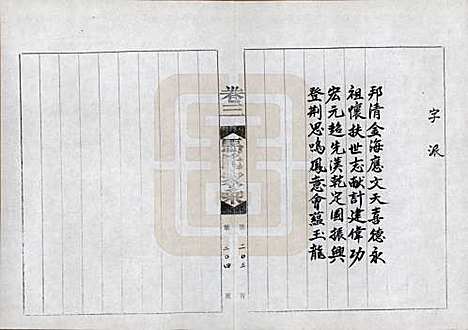 字派
邦清金海應文天喜德永
祖懷扶世志献計建偉功
宏元超先漢乾定國振興
登荆思鳴鳳意會蘊玉龍
卷三
第二〇三頁
第二〇四頁